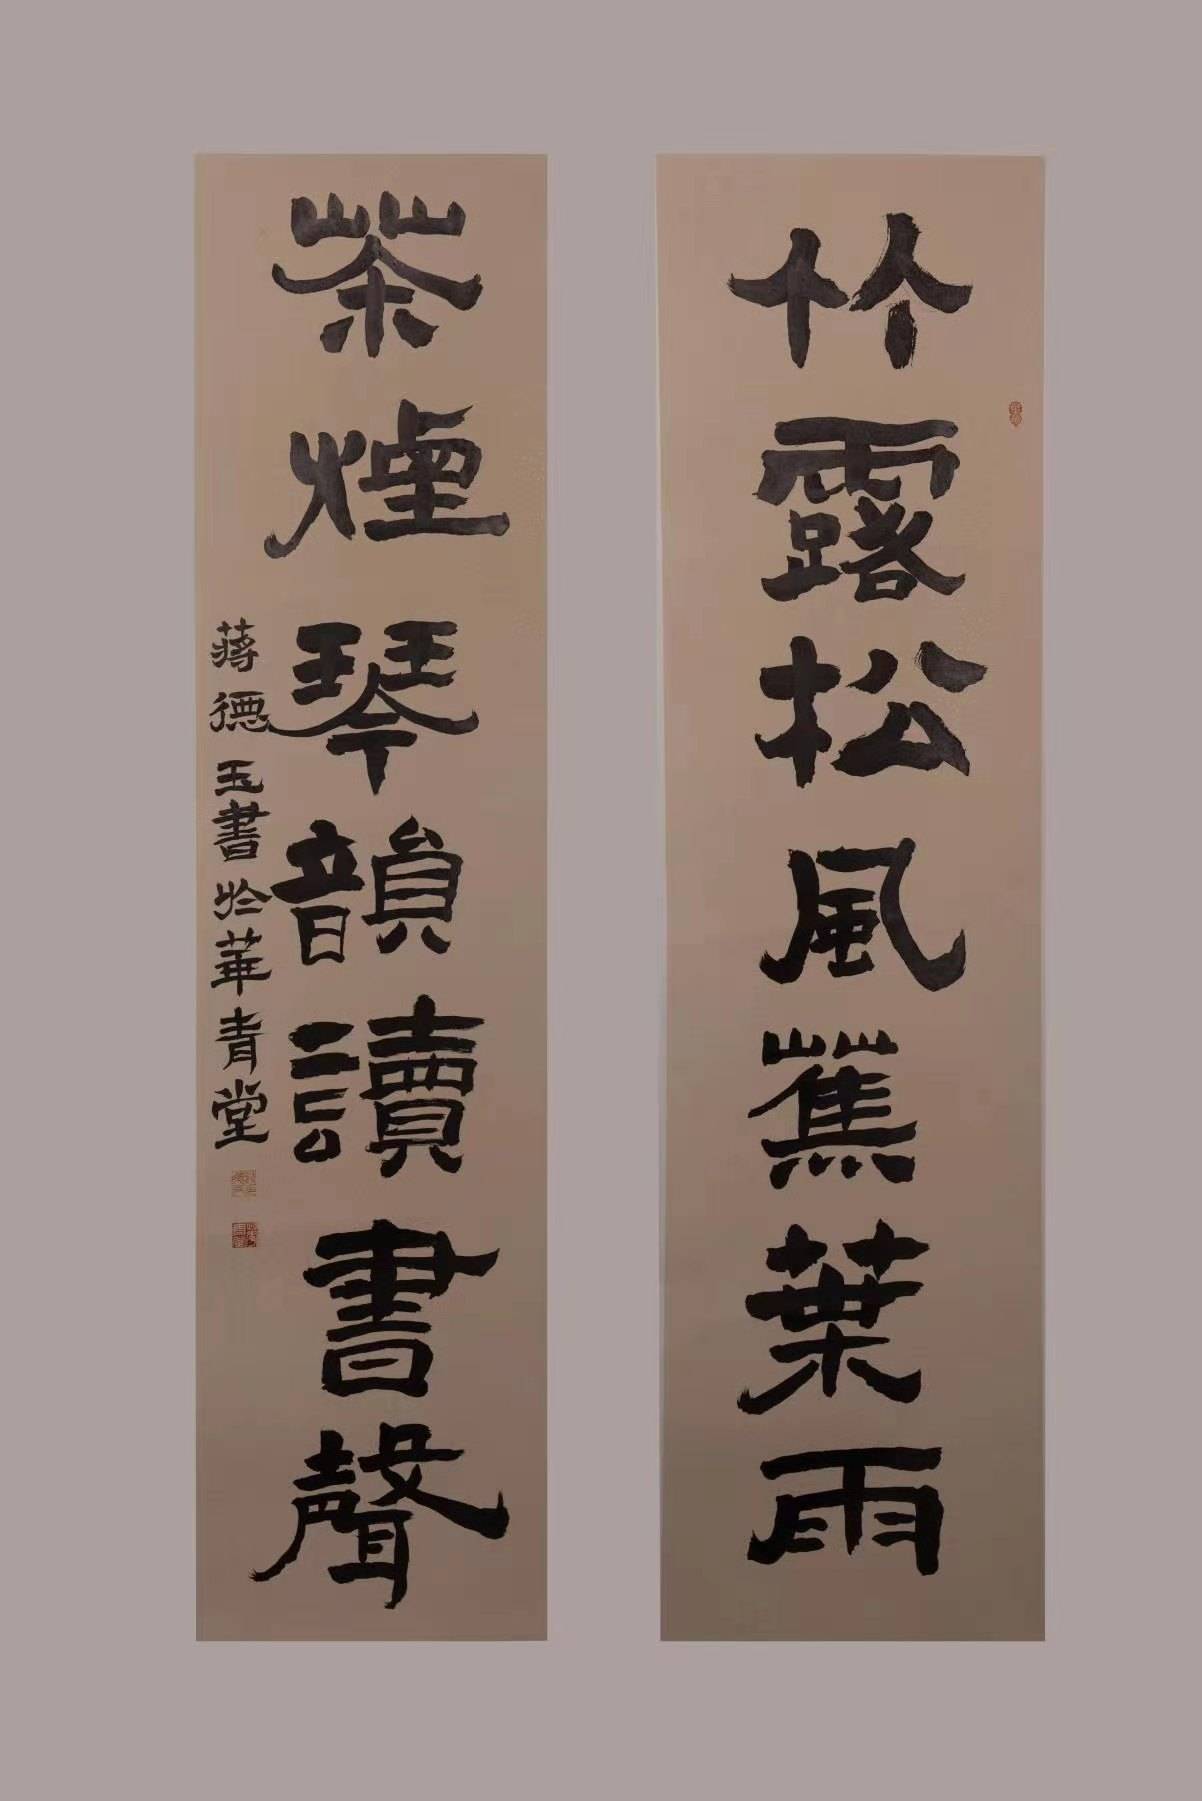 竹露松風蕉葉雨
茶煙琴韻讀書聲
蔣德玉書於華青堂